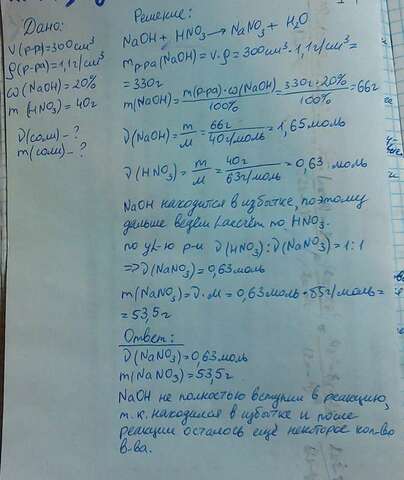 Дано:
V(р-ра)=300см³
ρ(р-ра)=1,1г/см³
ω(NaOH)=20%
m(HNO₃)=40г
ν(соли)-?
m(соли)-?
Решение:
NaOH + HNO₃ → NaNO₃ + H₂O
mр-ра(NaOH)=V·ρ=300см³·1,1г/см³=
=330г
m(NaOH)=m(р-ра)·ω(NaOH)/100%=330г·20%/100%=66г
ν(NaOH)=m/M=66г/40г/моль=1,65моль
ν(HNO₃)=m/M=40г/63г/моль=0,63 моль
NaOH находится в избытке, поэтому
дальше ведем рассчёт по HNO₃.
по ур-ю р-и ν(HNO₃):ν(NaNO₃)=1:1
=>ν(NaNO₃)=0,63моль
m(NaNO₃)=ν·M=0,63моль·85г/моль=
=53,5г
Ответ:
ν(NaNO₃)=0,63моль
m(NaNO₃)=53,5г
NaOH не полностью вступил в реакцию,
т.к. находился в избытке и после
реакции осталось ещё некоторое кол-во
в-ва.